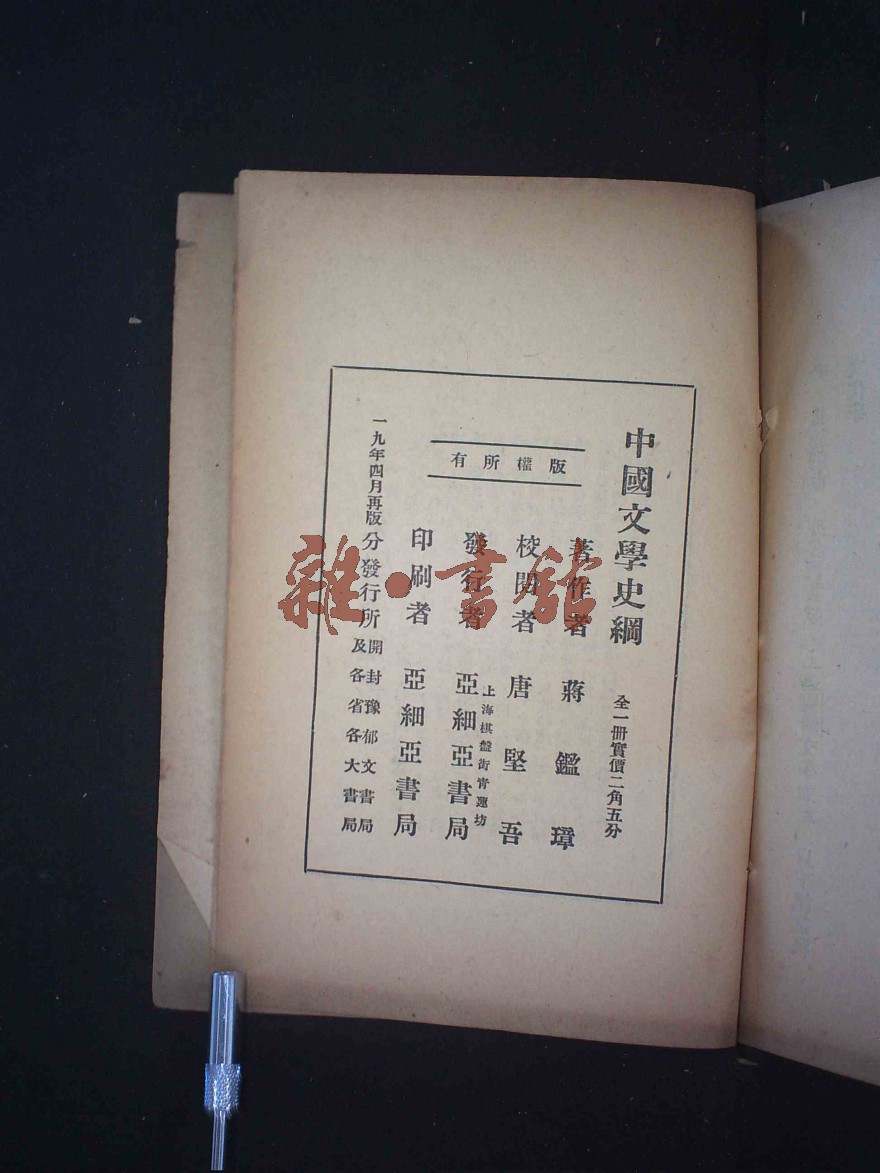 中國文學史綱
全一冊實價二角五分
版權所有
著作者 蔣鑑璋
校閱者 唐堅吾
發行者 上海棋盤街青蓮坊 亞細亞書局
印刷者 亞細亞書局
一九年四月再版
分發行所 開封豫郁文書局
及各省各大書局
雜·書館